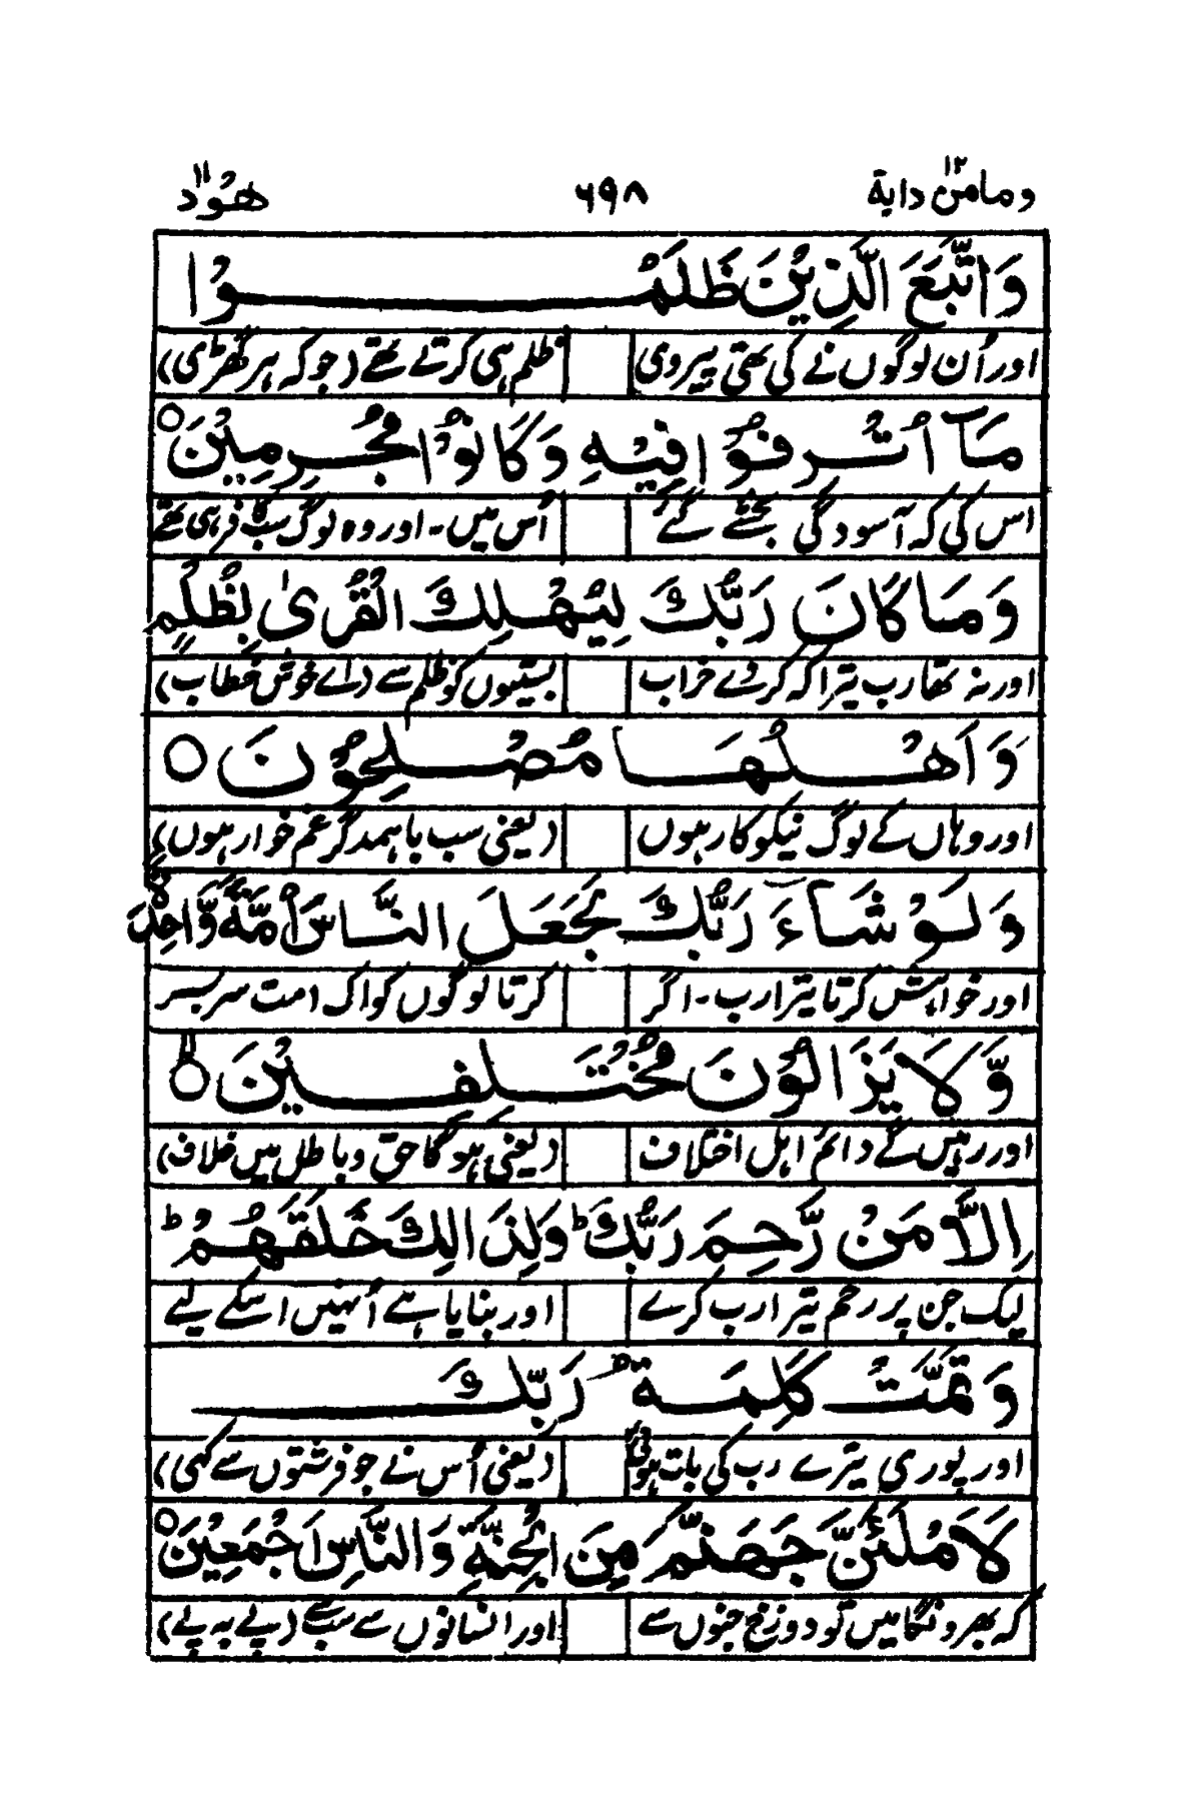 ومامن دابة ۱۲ ۶۹۸ هُود ۱۱
وَاتَّبَعَ الَّذِيْنَ ظَلَمُوْا
اور اُن لوگوں نے کی تھی پیروی ظلم ہی کرتے تھے (جو کہ ہر گھڑی)
مَآ اُتْرِفُوْا فِيْهِ وَكَانُوْا مُجْرِمِيْنَ ○
اس کی کہ آسودگی بخشے گئے اُس میں ۔ اور وہ لوگ سب کافر ہی تھے
وَمَا كَانَ رَبُّكَ لِيُهْلِكَ الْقُرٰى بِظُلْمٍ
اور نہ تھا رب تیرا کہ کر دے خراب بستیوں کو ظلم سے (اے خوش خطاب)
وَّاَهْلُهَا مُصْلِحُوْنَ ○
اور وہاں کے لوگ نیکوکار ہوں (یعنی سب باہمدگر غم خوار ہوں)
وَلَوْ شَآءَ رَبُّكَ لَجَعَلَ النَّاسَ اُمَّةً وَّاحِدَةً
اور خواہش کرتا تیرا رب ۔ اگر کرتا لوگوں کو اک امت سر بسر
وَّلَا يَزَالُوْنَ مُخْتَلِفِيْنَ ○
اور رہیں گے دائم اہل اختلاف (یعنی ہوگا حق و باطل میں خلاف)
اِلَّا مَنْ رَّحِمَ رَبُّكَ ؕ وَلِذَالِكَ خَلَقَهُمْ ؕ
لیک جن پر رحم تیرا رب کرے اور بنایا ہے اُنہیں اسکے لیے
وَتَمَّتْ كَلِمَةُ رَبِّكَ
اور پوری تیرے رب کی بات ہوئی (یعنی اُس نے جو فرشتوں سے کہی)
لَاَمْلَئَنَّ جَهَنَّمَ مِنَ الْجِنَّةِ وَالنَّاسِ اَجْمَعِيْنَ ○
کہ بھرونگا میں تو دوزخ جنوں سے اور انسانوں سے سب سے (پے بہ پے)